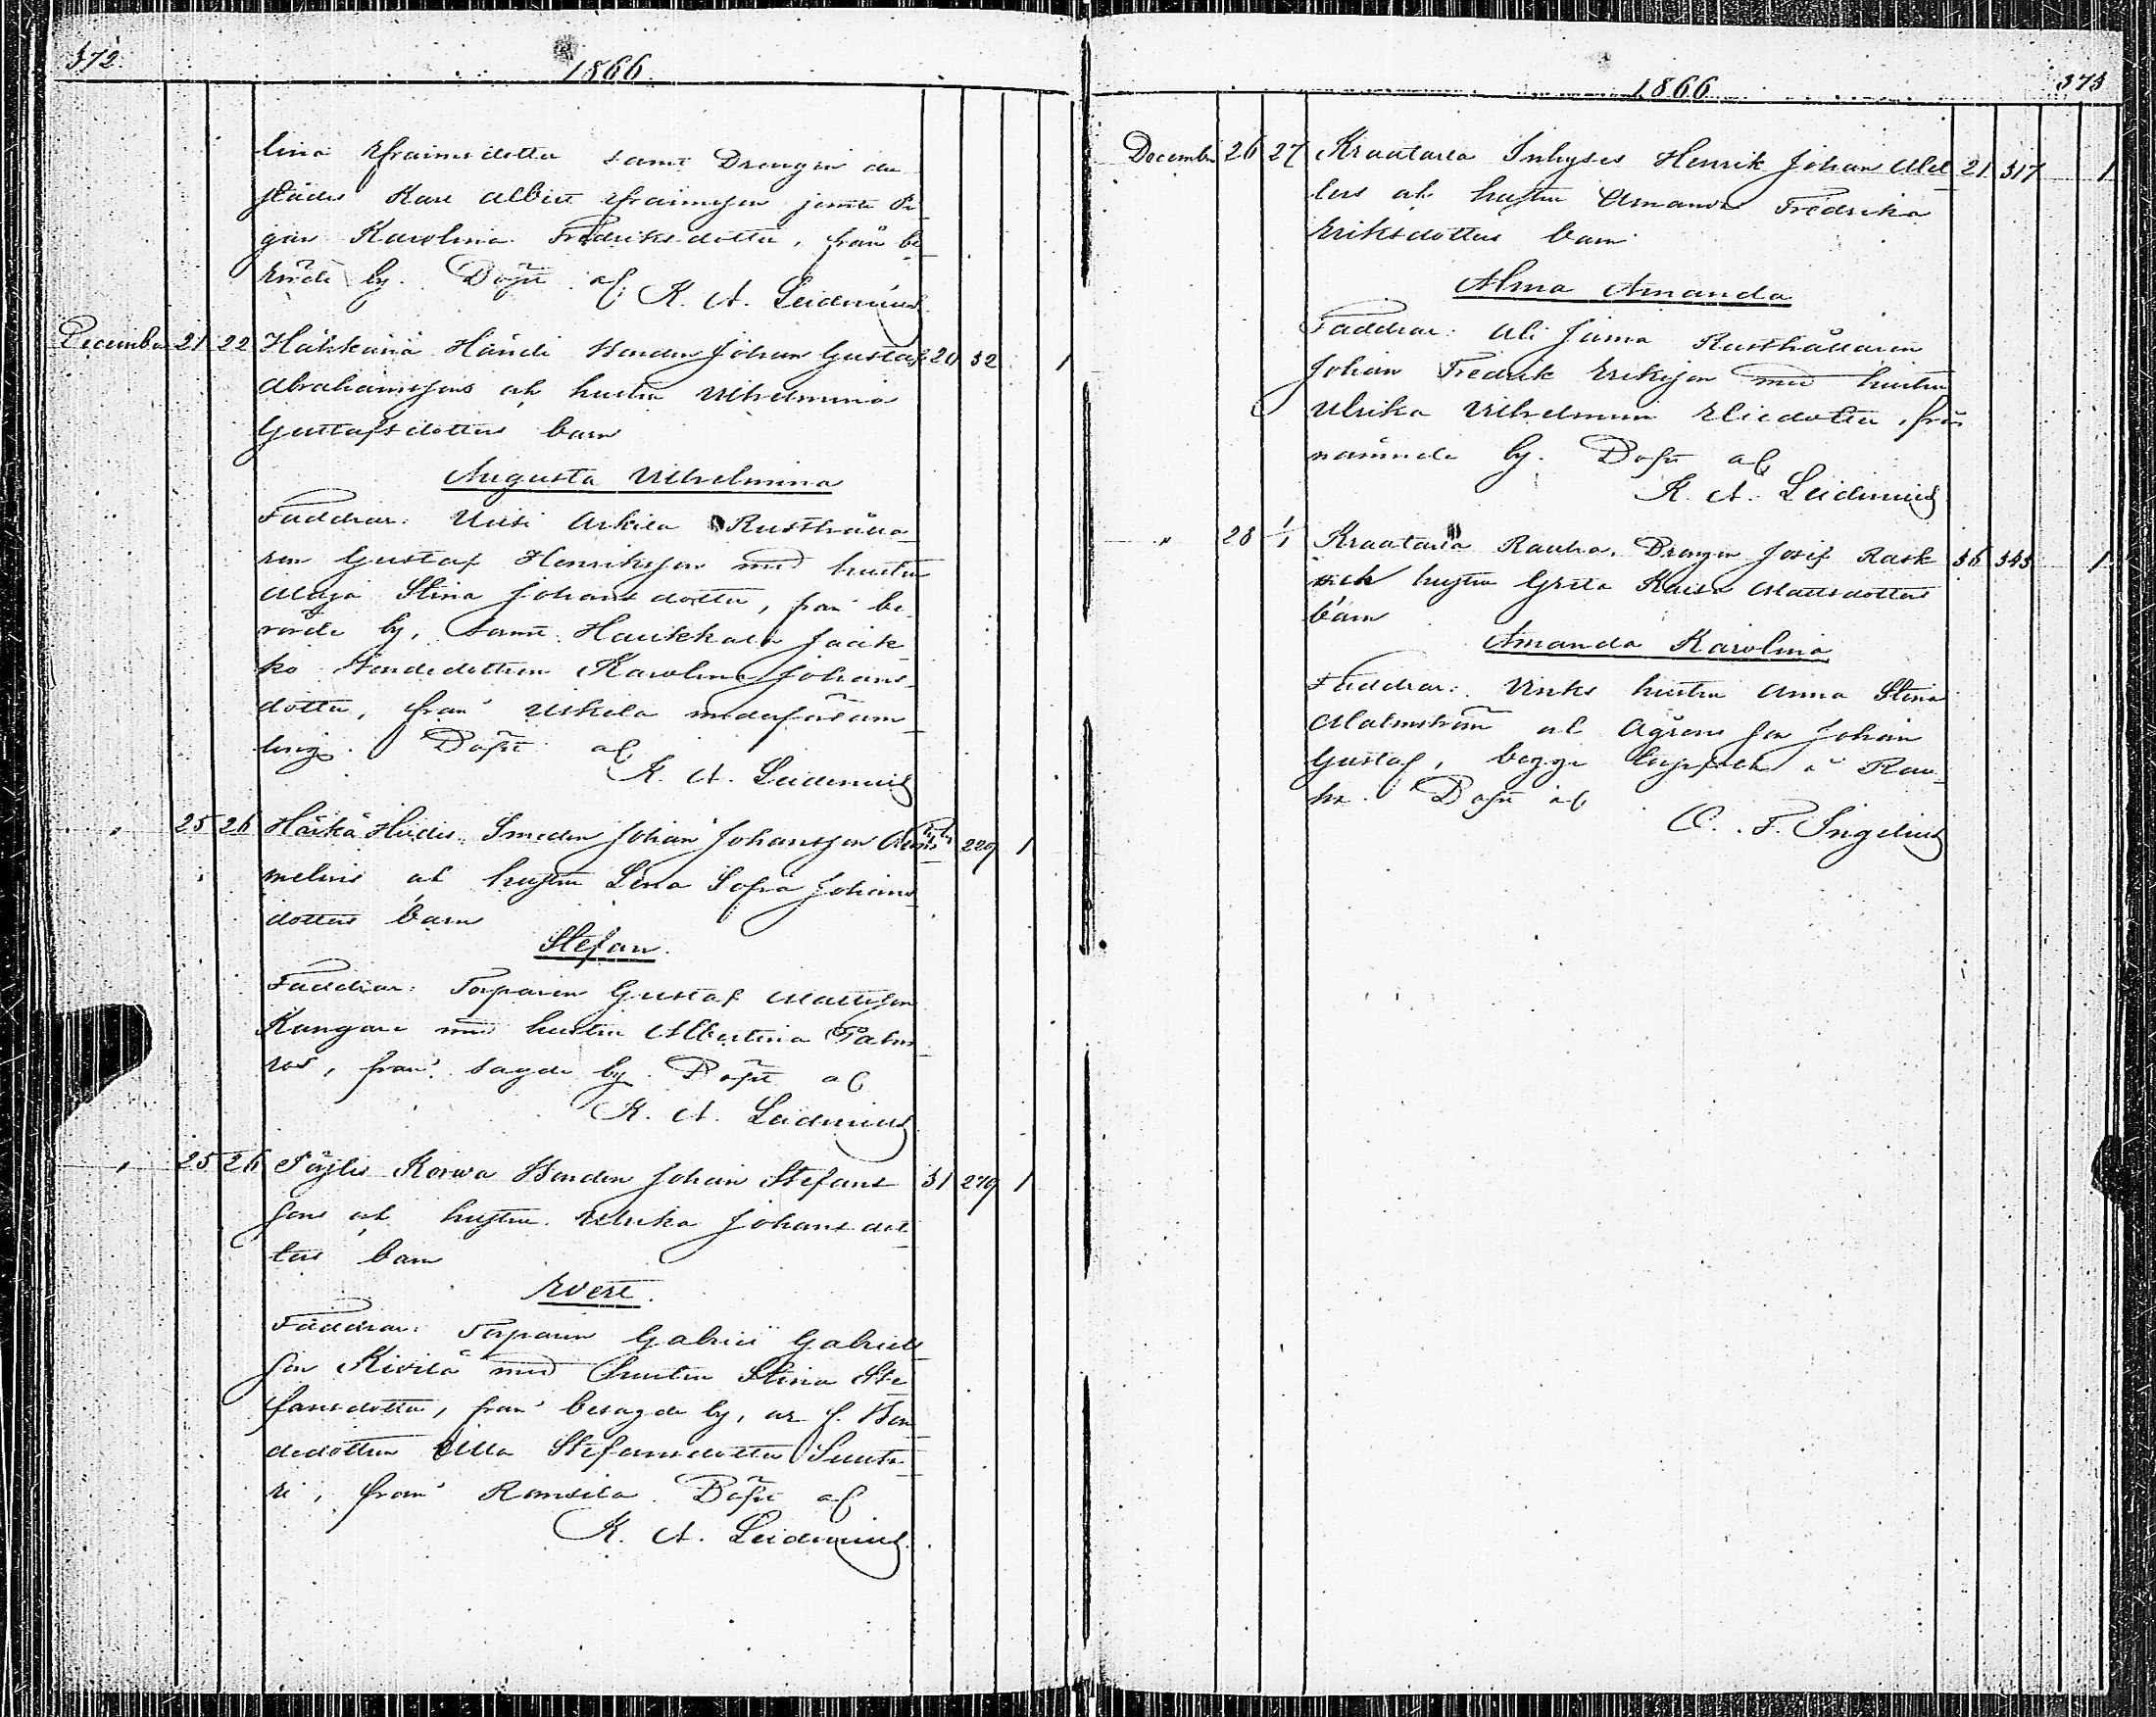 372.
1866.
lina Efraimsdotter samt Drengen der
städes Karl Albert Efraimsson jemte Pi
gan Karolina Fredriksdotter, från be
rörde by. Döpt af K. A. Leidenius
December 21 22 Hähkänä Händi Bonden Johan Gustaf 20 32 1
Abrahamssons och hustru Vilhelmina
Gustafsdotters barn
Augusta Vilhelmina
Faddrar: Uusi Arkila Rusthålla
ren Gustaf Henriksson med hustru
Maja Stina Johansdotter, från be
rörde by, samt Haukkala Jaak
ko Bondedottren Karolina Johans
dotter, från Uskela moderförsam
ling. Döpt af
K. A. Leidenius
" 25 26 Härkä Smeden Johan Johansson 229 1
melins och hustru Lena Sofia Johans
dotters barn
Stefan.
Faddrar: Torparen Gustaf Mattsson
Kangare med hustru Albertina Palm
ros, från sagde by. Döpt af
K. A. Leidenius
" 25 26 Pöytis Korwa Bonden Johan Stefans 31 279 1
sons och hustru Ulrika Johansdot
ters barn
Evert.
Faddrar: Torparen Gabriel Gabriels
son Kivilä med hustru Stina Ste
fansdotter, från besagde by, o. f. Bon
dedottren Ulla Stefansdotter Suuta
ri, från Ransila. Döpt af
K. A. Leidenius
1866
373
December 26 27 Kraatarla Inhyses Henrik Johan Mel 21 317 1
lers och hustru Amanda Fredrika
Eriksdotters barn
Alma Amanda
Faddrar: Ali Juma Rusthållaren
Johan Fredrik Eriksson med hustru
Ulrika Vilhelmina Eliedotter, från
nämnde by. Döpt af
K. A. Leidenius
" 28 1/1 Kraatarla Rauha. Drengen Josef Rask 36 343 1
och hustru Greta Kaisa Mattsdotters
barn
Amanda Karolina
Faddrar: Vinks hustru Anna Stina
Malmström och Ågrens son Johan
Gustaf, begge å Rau
ha. Döpt af
C. F. Ingelius